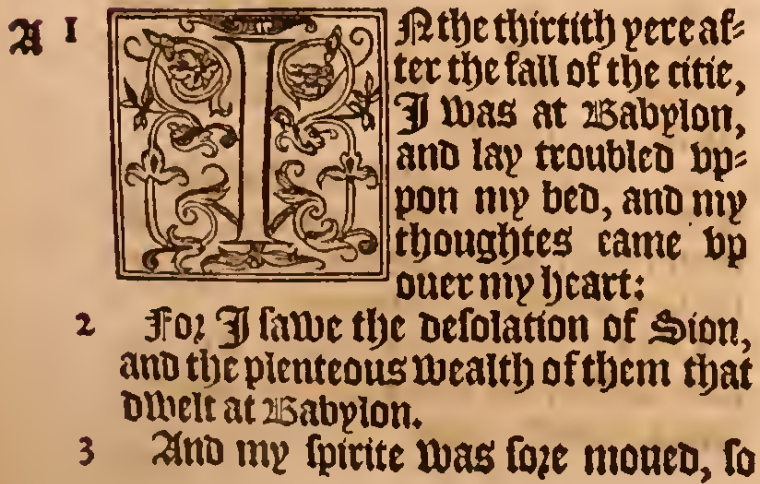 A 1 IN the thirtith yere af-
ter the fall of the citie,
I was at Babylon,
and lay troubled vp-
pon my bed, and my
thoughtes came vp
ouer my heart:
2 For I sawe the desolation of Sion,
and the plenteous wealth of them that
dwelt at Babylon.
3 And my spirite was sore moued, so